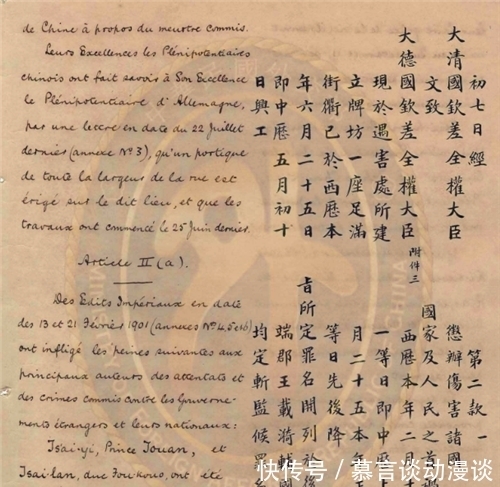 de Chine à propos du meurtre commis.
Leurs Excellences les Plénipotentiaires
chinois ont fait savoir à Son Excellence
le Plénipotentiaire d'Allemagne,
par une lettre en date du 22 juillet
dernier (annexe No 3), qu'un portique
de toute la largeur de la rue est
érigé sur le dit lieu, et que les
travaux ont commencé le 25 juin dernier.
Article II (a).
Des Edits Impériaux en date
des 13 et 21 Février 1901 (annexes Nos 4, 5 et 6)
ont infligé les peines suivantes aux
principaux auteurs des attentats et
des crimes commis contre les Gouverne-
ments étrangers et leurs nationaux:
Tsai-yi, Prince Touan, et
Tsai-lan, duc Fou-kouo, ont été
初七日經
大清國欽差全權大臣
文致
大德國欽差全權大臣 附件三
現於遇害處所建
立牌坊一座足滿
街衢已於西歷本
年六月二十五日
即中歷五月初十
日興工
第二款 一
懲辦傷害諸國
國家及人民之首
西歷本年二月
一等日即中歷
月二十五本年
等日先後降
旨所定罪名開列於
端郡王載漪
均定斬監候罪
快传号／慕言谈动漫谈